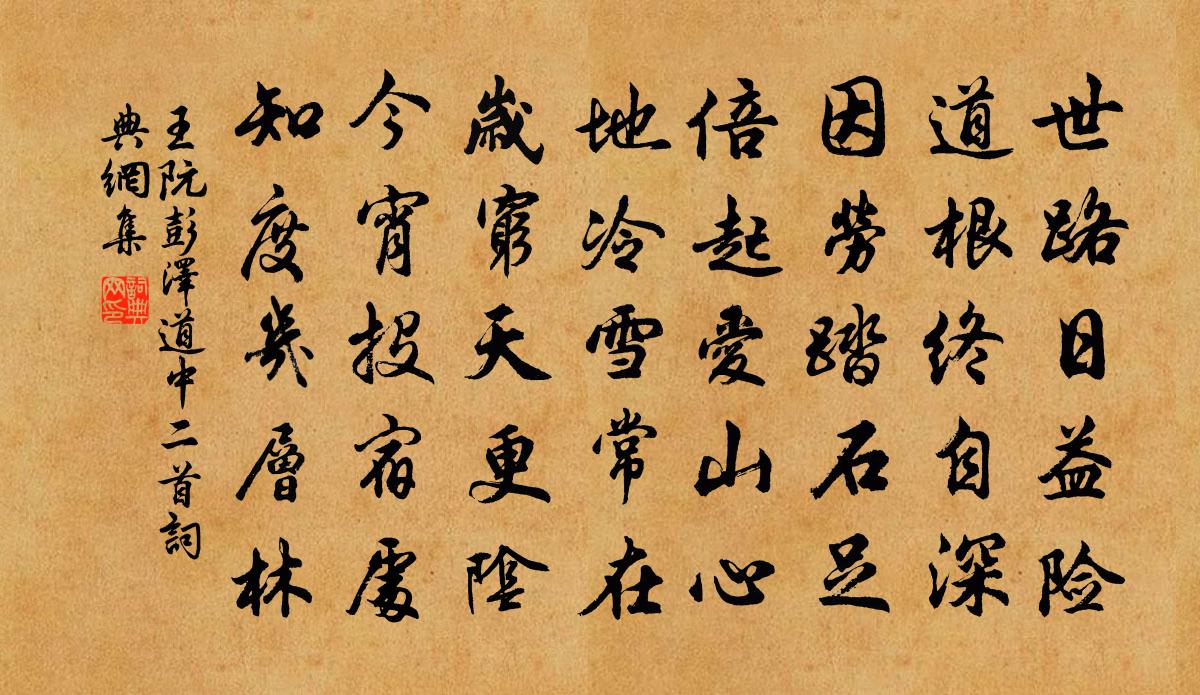 世路日益险
道根终自深
因劳踏石足
倍起爱山心
地冷雪常在
歲窮天更陰
今宵投宿處
知度幾層林
王阮彭澤道中二首詞
典網集
詞典網印